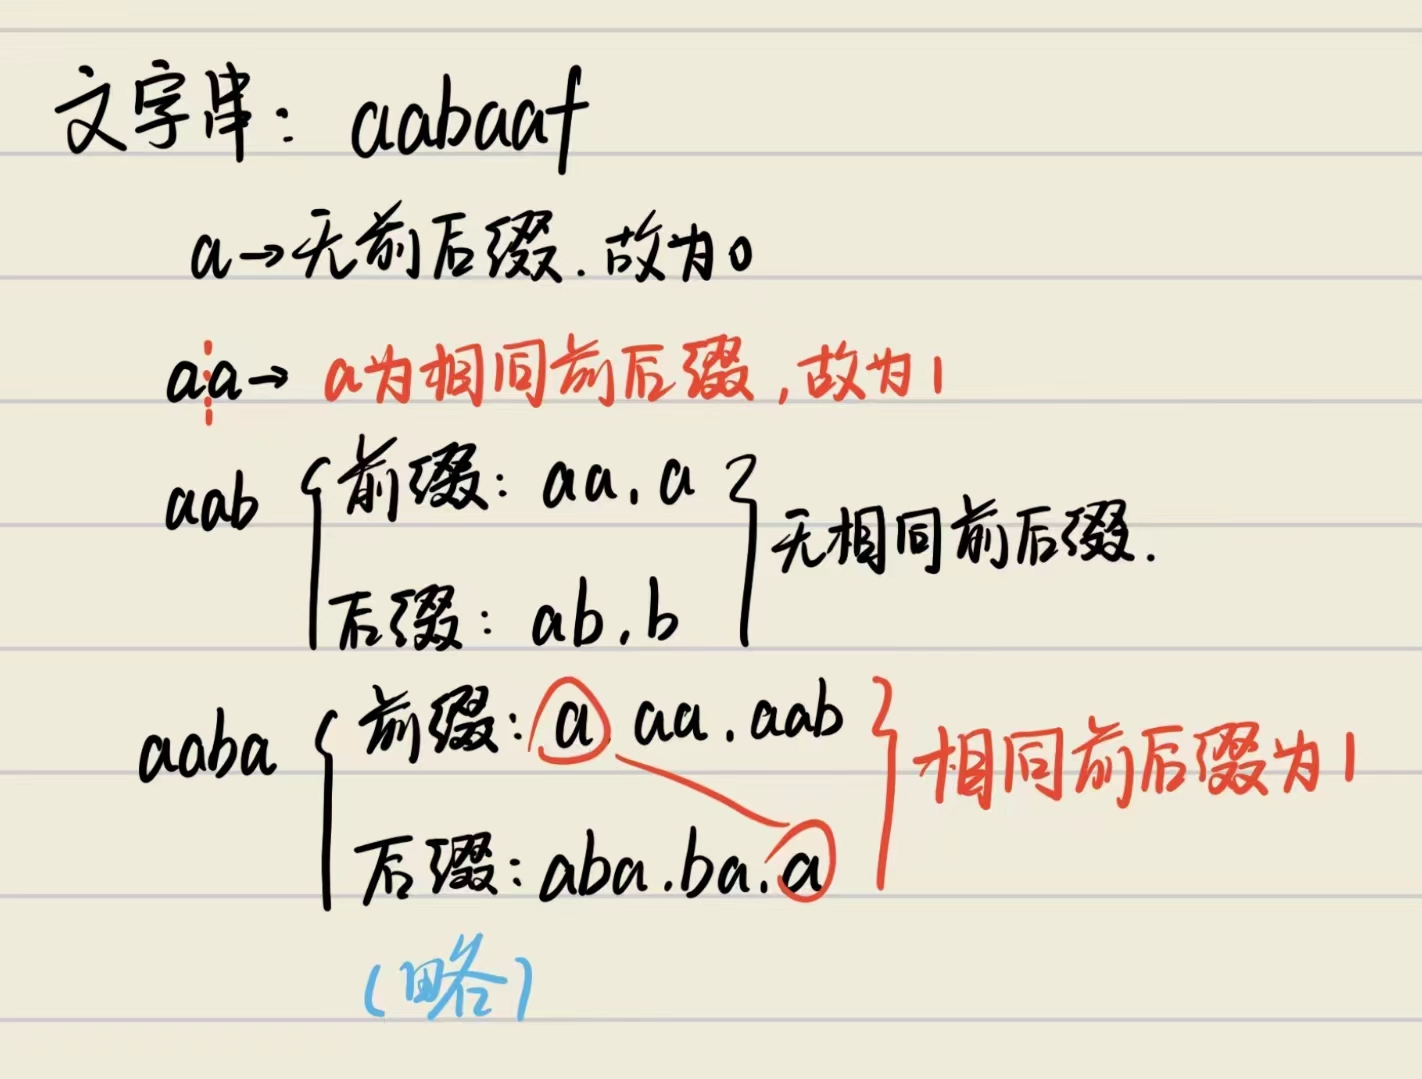 文字串：aabaaf
a→无前后缀.故为0
aa→ a为相同前后缀,故为1
aab
前缀：aa.a
后缀：ab.b
无相同前后缀.
aaba
前缀：a.aa.aab
后缀：aba.ba.a
相同前后缀为1
(略)